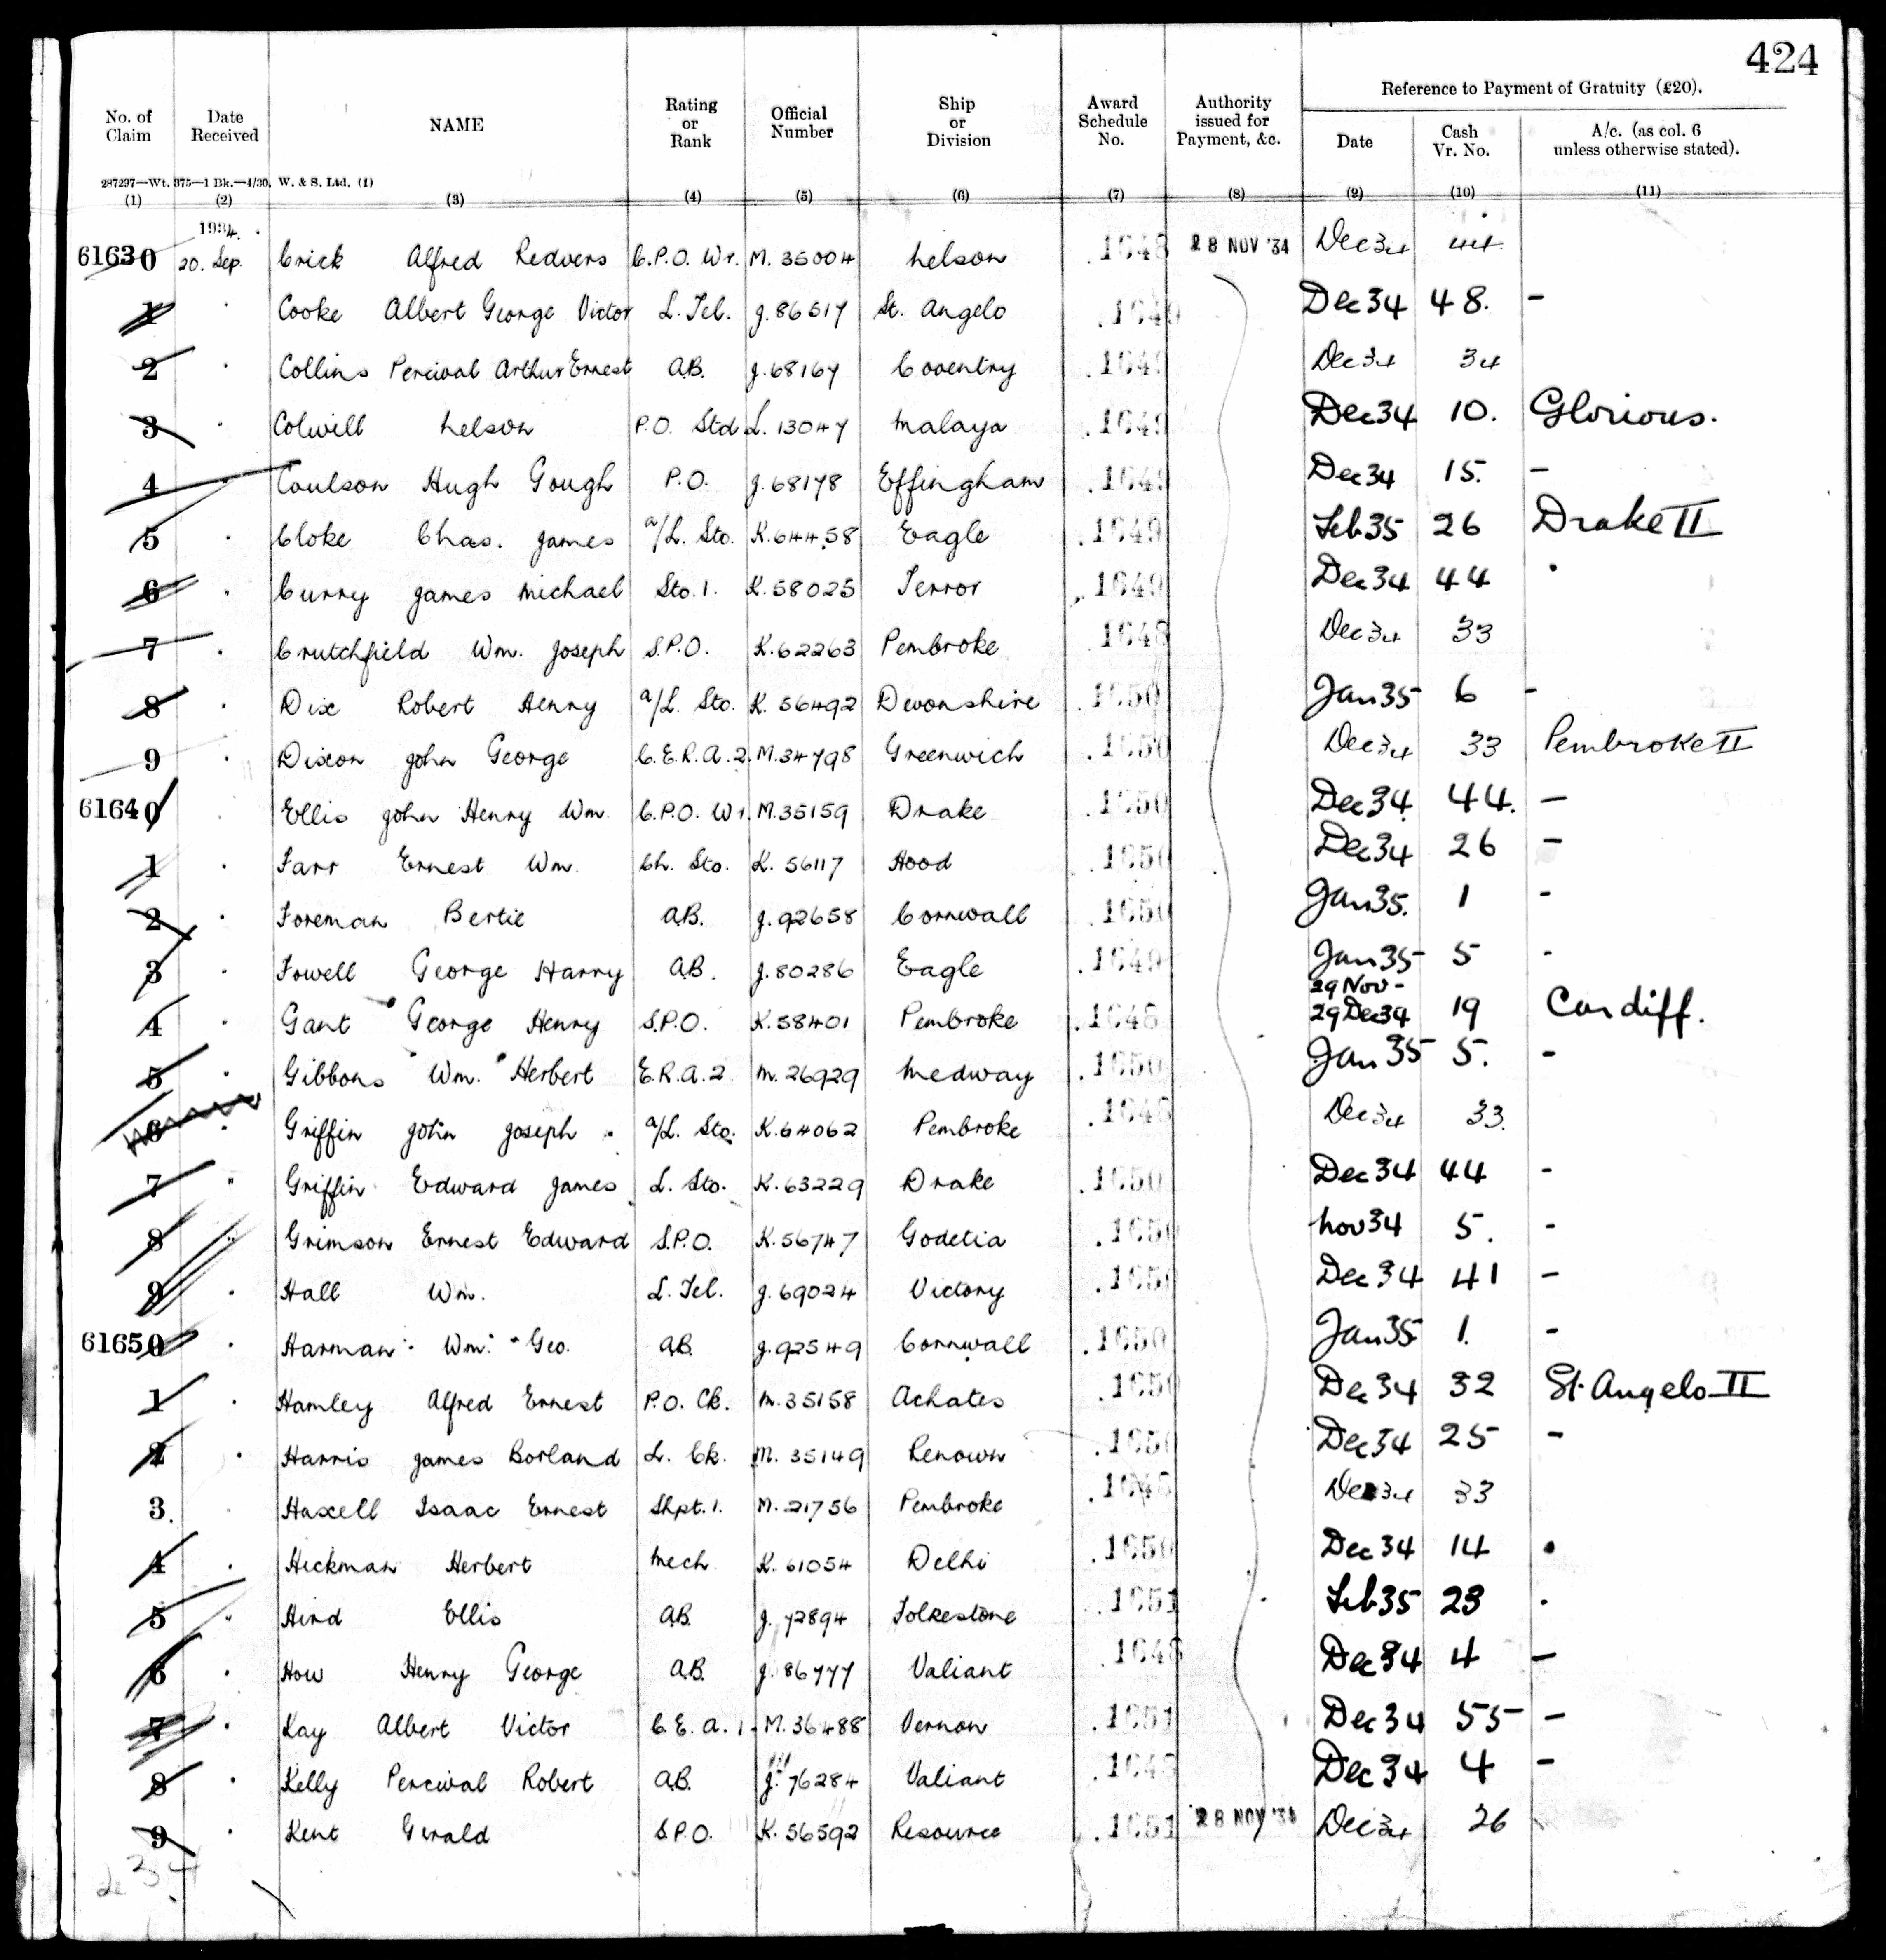 424
No. of Claim Date Received NAME Rating or Rank Official Number Ship or Division Award Schedule No. Authority issued for Payment, &c. Reference to Payment of Gratuity (£20).
Date Cash Vr. No. A/c. (as col. 6 unless otherwise stated).
287297—Wt. 375—1 Bk.—4/30. W. & S. Ltd. (1)
(1) (2) (3) (4) (5) (6) (7) (8) (9) (10) (11)
1934.
61630 20. Sep. Crick Alfred Redvers C.P.O. Wr. M. 35004 Nelson 1648 28 NOV '34 Dec 34 44
1 Cooke Albert George Victor L. Tel. J. 86517 St. Angelo Dec 34 48. -
2 Collins Percival Arthur Ernest A.B. J. 68167 Coventry 1649 Dec 34 34
3 Colwill Nelson P.O. Std L. 13047 Malaya 1649 Dec 34 10. Glorious.
4 Coulson Hugh Gough P.O. J. 68178 Effingham 1649 Dec 34 15. -
5 Cloke Chas. James a/L. Sto. K. 64458 Eagle 1649 Feb 35 26 Drake II
6 Curry James Michael Sto. 1. K. 58025 Terror 1649 Dec 34 44 "
7 Crutchfield Wm. Joseph S.P.O. K. 62263 Pembroke 1648 Dec 34 33
8 Dix Robert Henry a/L. Sto. K. 56492 Devonshire 1650 Jan 35 6 -
9 Dixon John George C.E.R.A. 2. M. 34798 Greenwich 1650 Dec 34 33 Pembroke II
61640 Ellis John Henry Wm. C.P.O. Wr. M. 35159 Drake 1650 Dec 34 44. -
1 Farr Ernest Wm. Ch. Sto. K. 56117 Hood 1650 Dec 34 26 -
2 Foreman Bertie A.B. J. 92658 Cornwall 1650 Jan 35. 1 -
3 Fowell George Harry A.B. J. 80286 Eagle 1649 Jan 35 5 -
29 Nov -
4 Gant George Henry S.P.O. K. 58401 Pembroke 1648 29 Dec 34 19 Cardiff.
5 Gibbons Wm. Herbert E.R.A. 2 M. 26929 Medway 1650 Jan 35 5. -
6 Griffin John Joseph a/L. Sto. K. 64062 Pembroke 1648 Dec 34 33.
7 Griffin Edward James L. Sto. K. 63229 Drake 1650 Dec 34 44 -
8 Grimson Ernest Edward S.P.O. K. 56747 Godetia 1650 Nov 34 5. -
9 Hall Wm. L. Tel. J. 69024 Victory 1650 Dec 34 41 -
61650 Harman Wm. Geo. A.B. J. 92549 Cornwall 1650 Jan 35 1. -
1 Hamley Alfred Ernest P.O. Ck. M. 35158 Achates 1650 Dec 34 32 St. Angelo II
2 Harris James Borland L. Ck. M. 35149 Renown 1650 Dec 34 25 -
3. Haxell Isaac Ernest Shpt. 1. M. 21756 Pembroke 1648 Dec 34 33
4 Hickman Herbert Mech K. 61054 Delhi 1650 Dec 34 14 "
5 Hird Ellis A.B. J. 72894 Folkestone 1651 Feb 35 23 "
6 How Henry George A.B. J. 86777 Valiant 1648 Dec 34 4 -
7 Kay Albert Victor C.E.A. 1. M. 36488 Vernon 1651 Dec 34 55 -
8 Kelly Percival Robert A.B. J. 76284 Valiant 1648 Dec 34 4 -
9 Kent Gerald S.P.O. K. 56592 Resource 1651 28 NOV '34 Dec 34 26